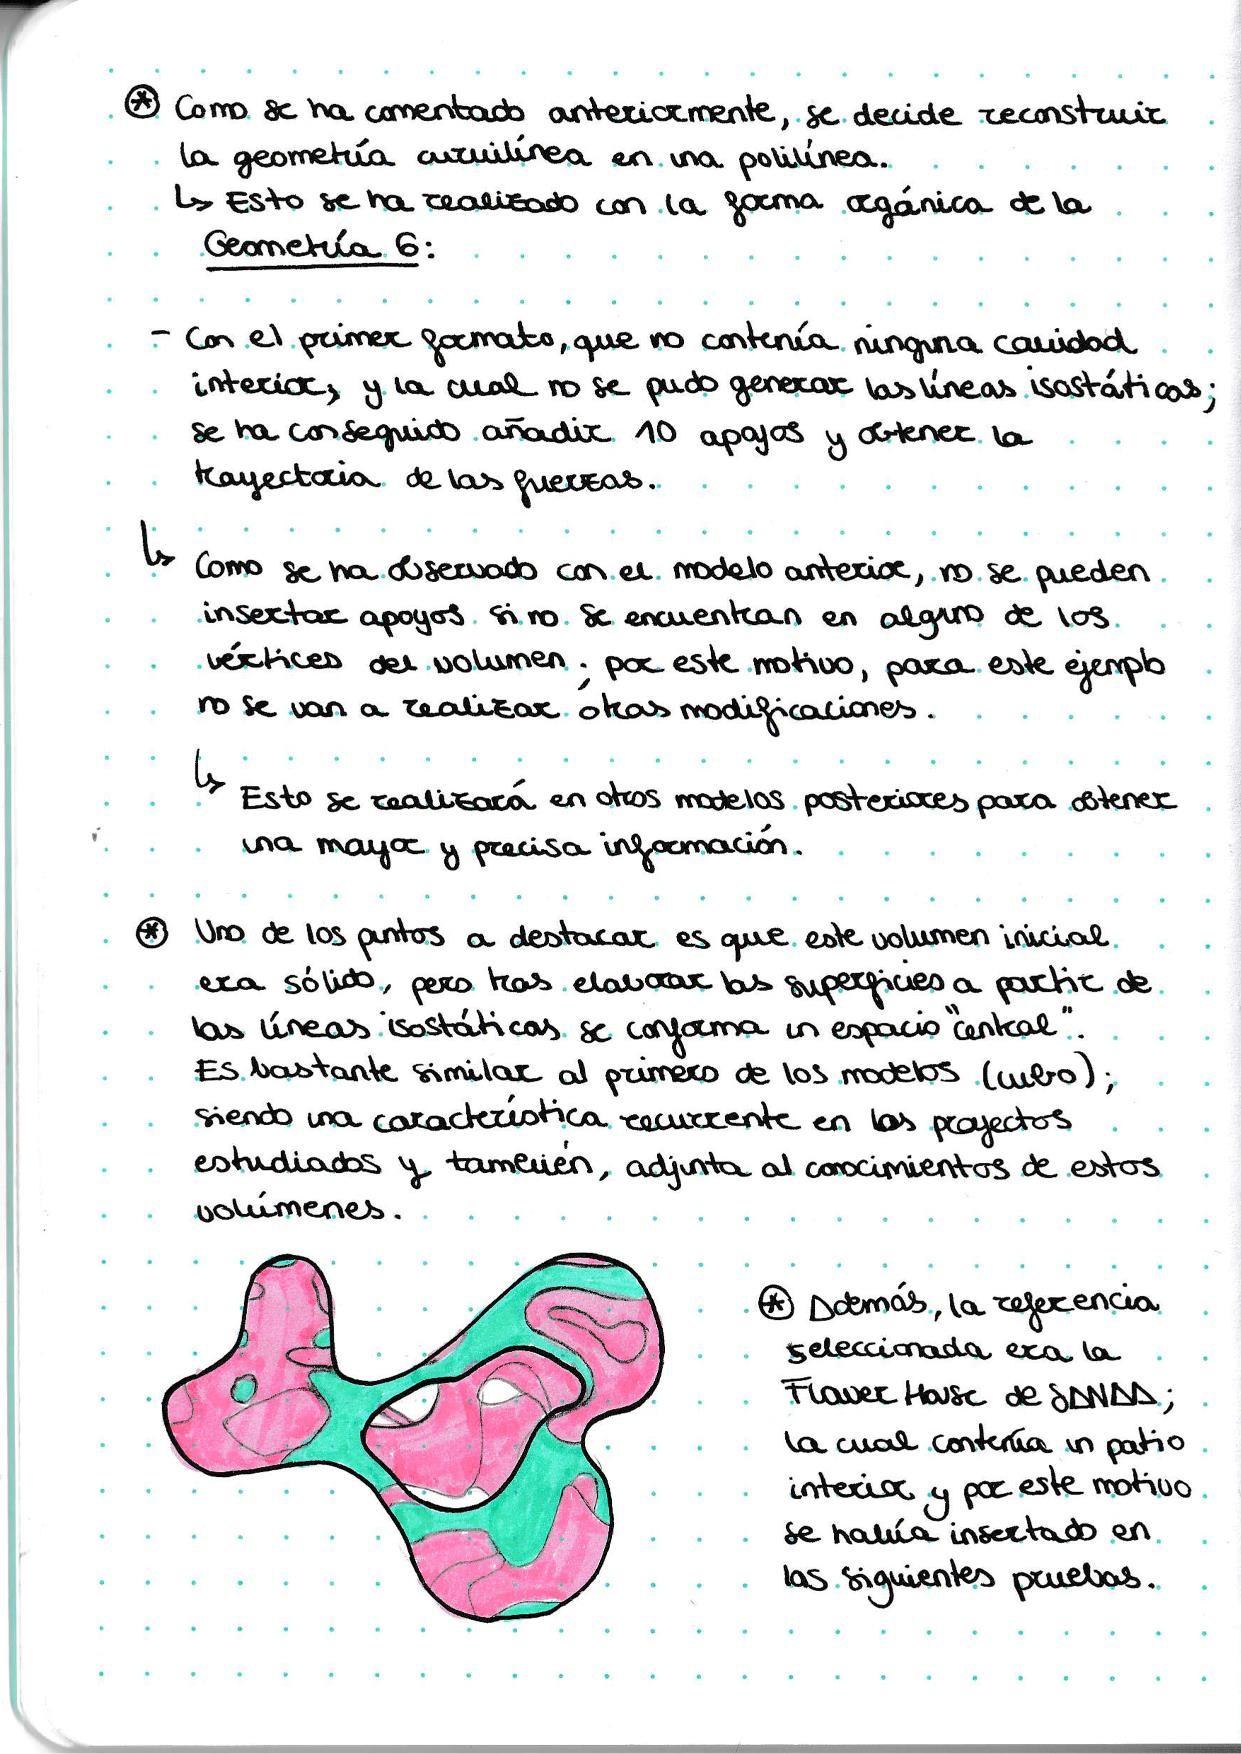 ⊛ Como se ha comentado anteriormente, se decide reconstruir
la geometría curvilínea en una polilínea.
↳ Esto se ha realizado con la forma orgánica de la
Geometría 6:
- Con el primer formato, que no contenía ninguna cavidad
interior, y la cual no se pudo generar las líneas isostáticas;
se ha conseguido añadir 10 apoyos y obtener la
trayectoria de las fuerzas.
↳ Como se ha observado con el modelo anterior, no se pueden
insertar apoyos si no se encuentran en alguno de los
vértices del volumen; por este motivo, para este ejemplo
no se van a realizar otras modificaciones.
↳ Esto se realizará en otros modelos posteriores para obtener
una mayor y precisa información.
⊛ Uno de los puntos a destacar es que este volumen inicial
era sólido, pero tras elaborar las superficies a partir de
las líneas isostáticas se conforma un espacio "central".
Es bastante similar al primero de los modelos (cubo);
siendo una característica recurrente en los proyectos
estudiados y también, adjunta al conocimientos de estos
volúmenes.
⊛ Además, la referencia
seleccionada era la
Flower House de SANAA;
la cual contenía un patio
interior y por este motivo
se había insertado en
las siguientes pruebas.